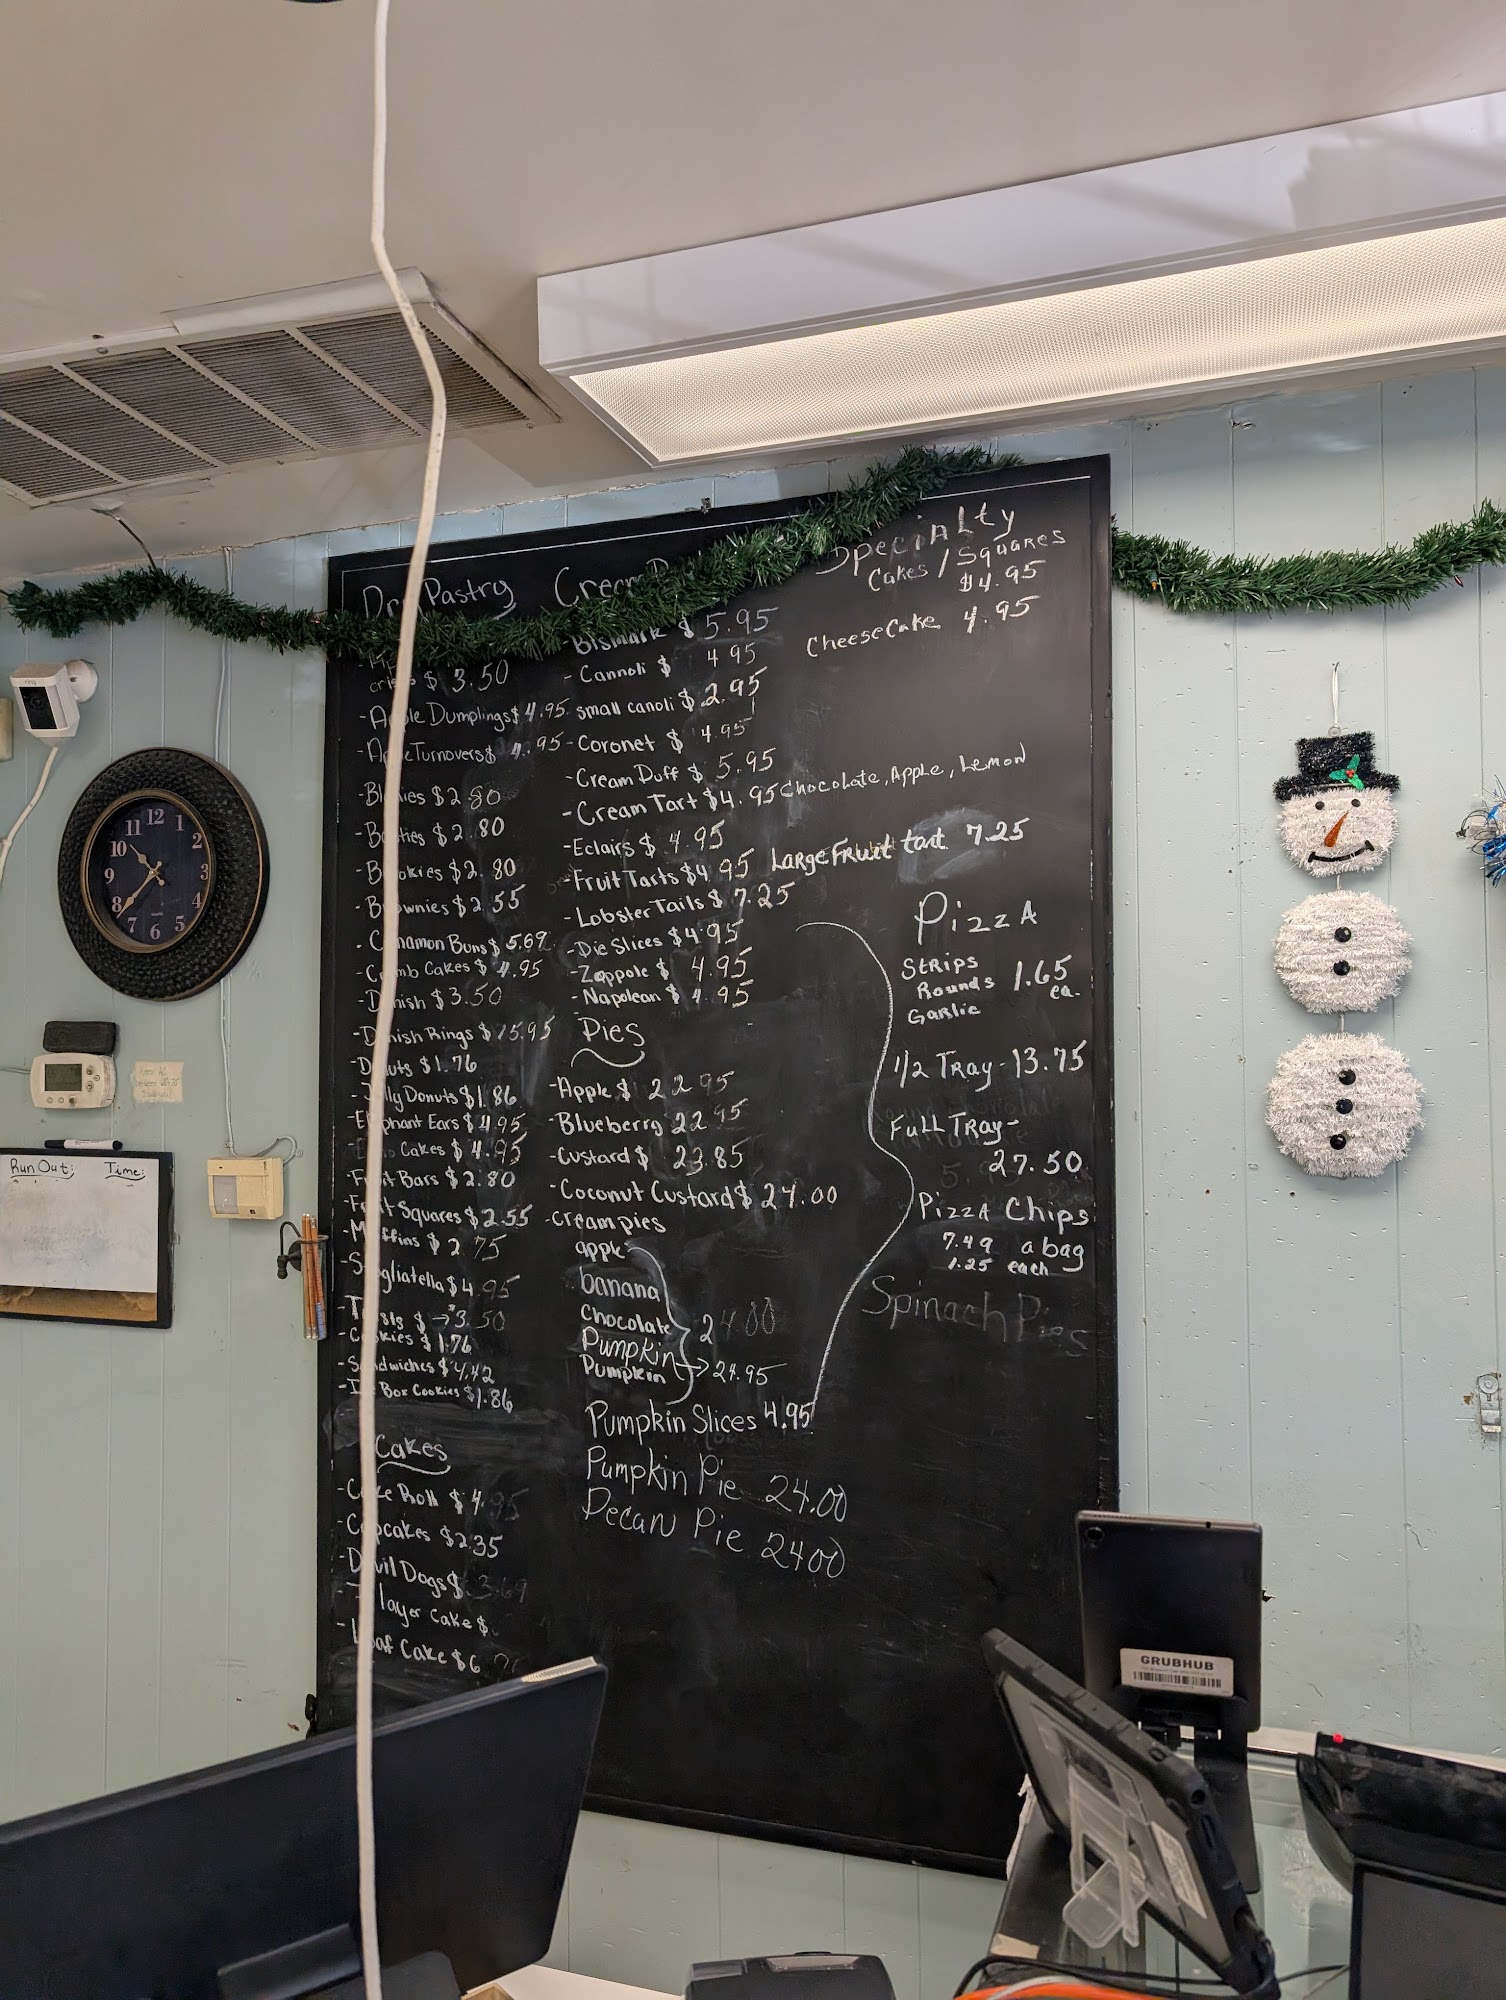 Pastry
$ 3.50
Dumplings $ 4.95
Turnovers $ 4.95
$ 2.80
$ 2.80
$ 2.80
$ 2.55
Buns $ 5.69
Cakes $ 4.95
$ 3.50
Rings $ 15.95
$ 1.76
Donuts $ 1.86
Ears $ 4.95
Cakes $ 4.95
Bars $ 2.80
Squares $ 2.55
$ 2.75
$ 4.95
$ → 3.50
$ 1.76
$ 4.42
Box Cookies $ 1.86
Cakes
Roll $ 4.95
$ 2.35
Dogs $ 3.69
layer cake $
Cake $ 6.75
Cream
- Bismark $ 5.95
- Cannoli $ 4.95
small canoli $ 2.95
- Coronet $ 4.95
- Cream Puff $ 5.95
- Cream Tart $4.95 Chocolate, Apple, Lemon
- Eclairs $ 4.95
- Fruit Tarts $4.95 Large Fruit tart 7.25
- Lobster Tails $ 7.25
- Pie Slices $4.95
- Zeppole $ 4.95
- Napolean $ 4.95
Pies
- Apple $ 22.95
- Blueberry 22.95
- Custard $ 23.85
- Coconut Custard $ 24.00
- cream pies
apple
banana
Chocolate 24.00
Pumpkin
Pumpkin → 24.95
Pumpkin Slices 4.95
Pumpkin Pie 24.00
Pecan Pie 2400
Specialty
Cakes / Squares
$4.95
CheeseCake 4.95
Pizza
Strips
Rounds 1.65
ea.
Garlic
1/2 Tray - 13.75
Full Tray -
27.50
Pizza Chips
7.49 a bag
1.25 each
Spinach Pies
12
1
2
3
4
5
6
7
8
9
10
11
ring
Run Out: Time:
GRUBHUB